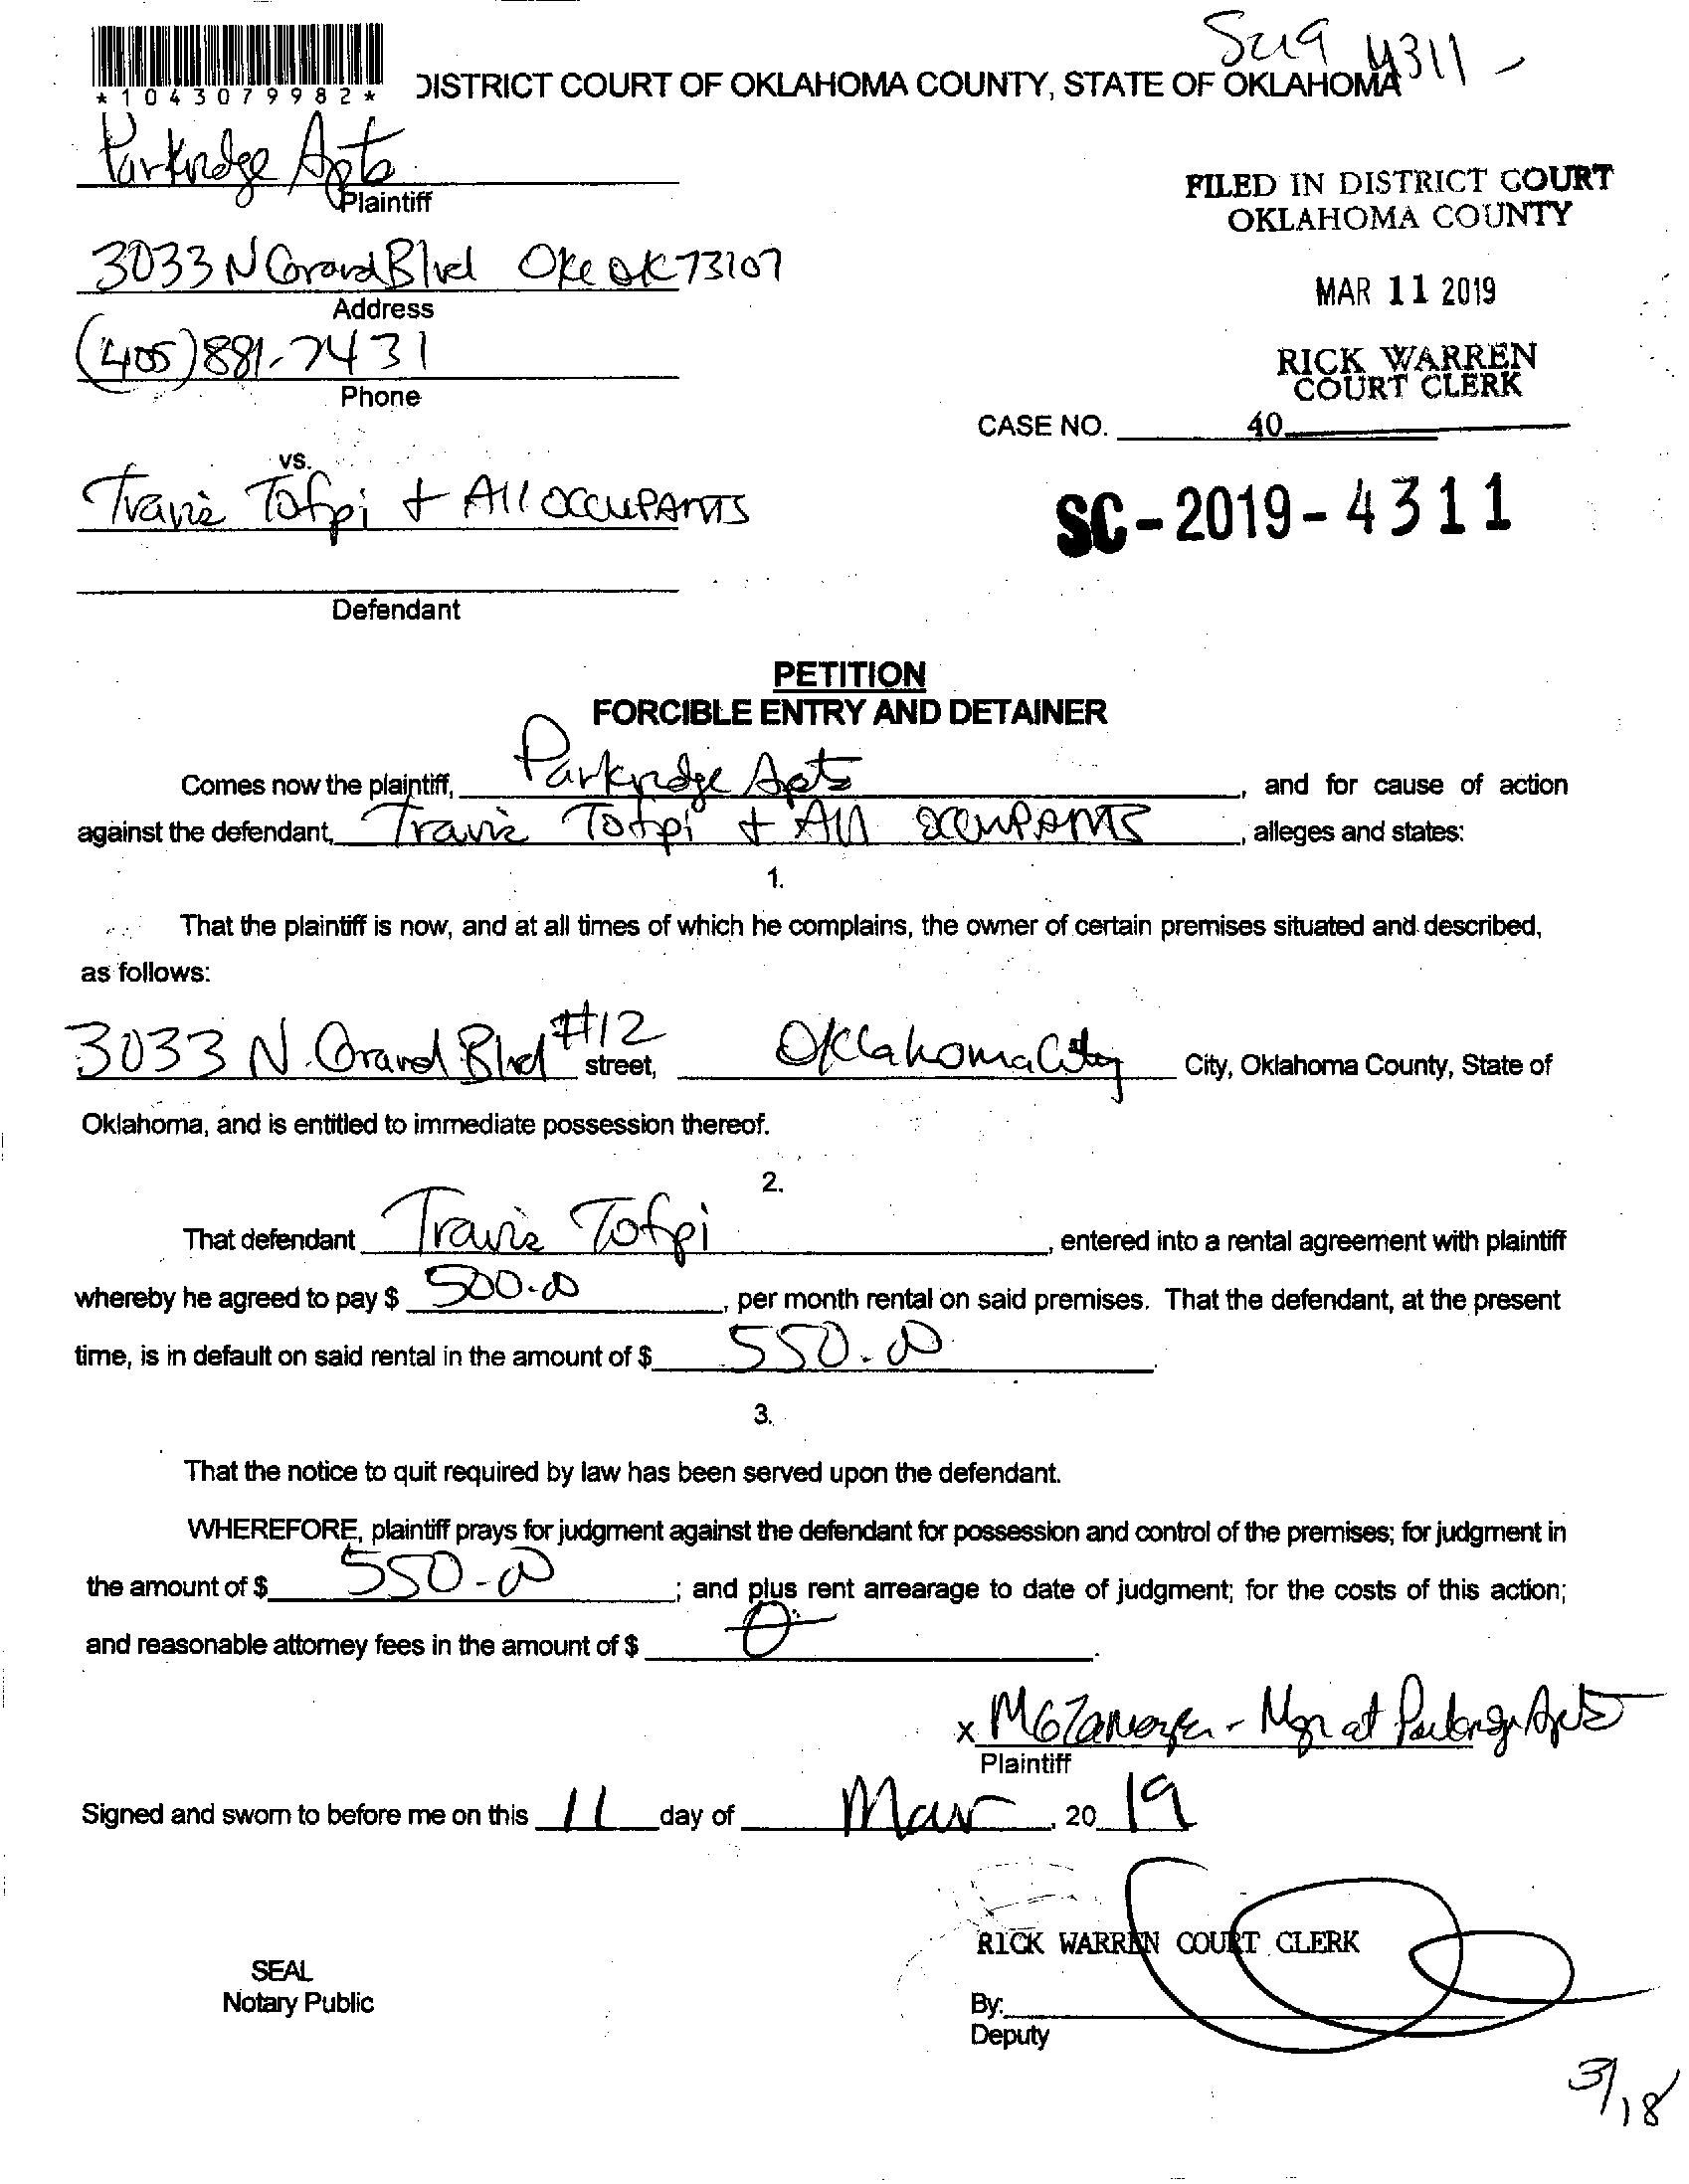 SC19 4311 -
*1043079982*
DISTRICT COURT OF OKLAHOMA COUNTY, STATE OF OKLAHOMA
Parkridge Apts
Plaintiff
FILED IN DISTRICT COURT
OKLAHOMA COUNTY
3033 N Grand Blvd OKC OK 73107
Address
MAR 11 2019
(405) 881-7431
Phone
RICK WARREN
COURT CLERK
CASE NO.
40
vs.
Travis Tofpi + All OCCUPANTS
SC-2019-4311
Defendant
PETITION
FORCIBLE ENTRY AND DETAINER
Comes now the plaintiff, Parkridge Apts, and for cause of action
against the defendant, Travis Tofpi + All OCCUPANTS, alleges and states:
1.
That the plaintiff is now, and at all times of which he complains, the owner of certain premises situated and described,
as follows:
3033 N. Grand Blvd #12 street, Oklahoma City City, Oklahoma County, State of
Oklahoma, and is entitled to immediate possession thereof.
2.
That defendant Travis Tofpi, entered into a rental agreement with plaintiff
whereby he agreed to pay $ 500.00, per month rental on said premises. That the defendant, at the present
time, is in default on said rental in the amount of $ 550.00.
3.
That the notice to quit required by law has been served upon the defendant.
WHEREFORE, plaintiff prays for judgment against the defendant for possession and control of the premises; for judgment in
the amount of $ 550-00; and plus rent arrearage to date of judgment; for the costs of this action;
and reasonable attorney fees in the amount of $ 0.
x - Mgr at Parkridge Apts
Plaintiff
Signed and sworn to before me on this 11 day of Mar, 2019
RICK WARREN COURT CLERK
SEAL
Notary Public
By:
Deputy
3/18